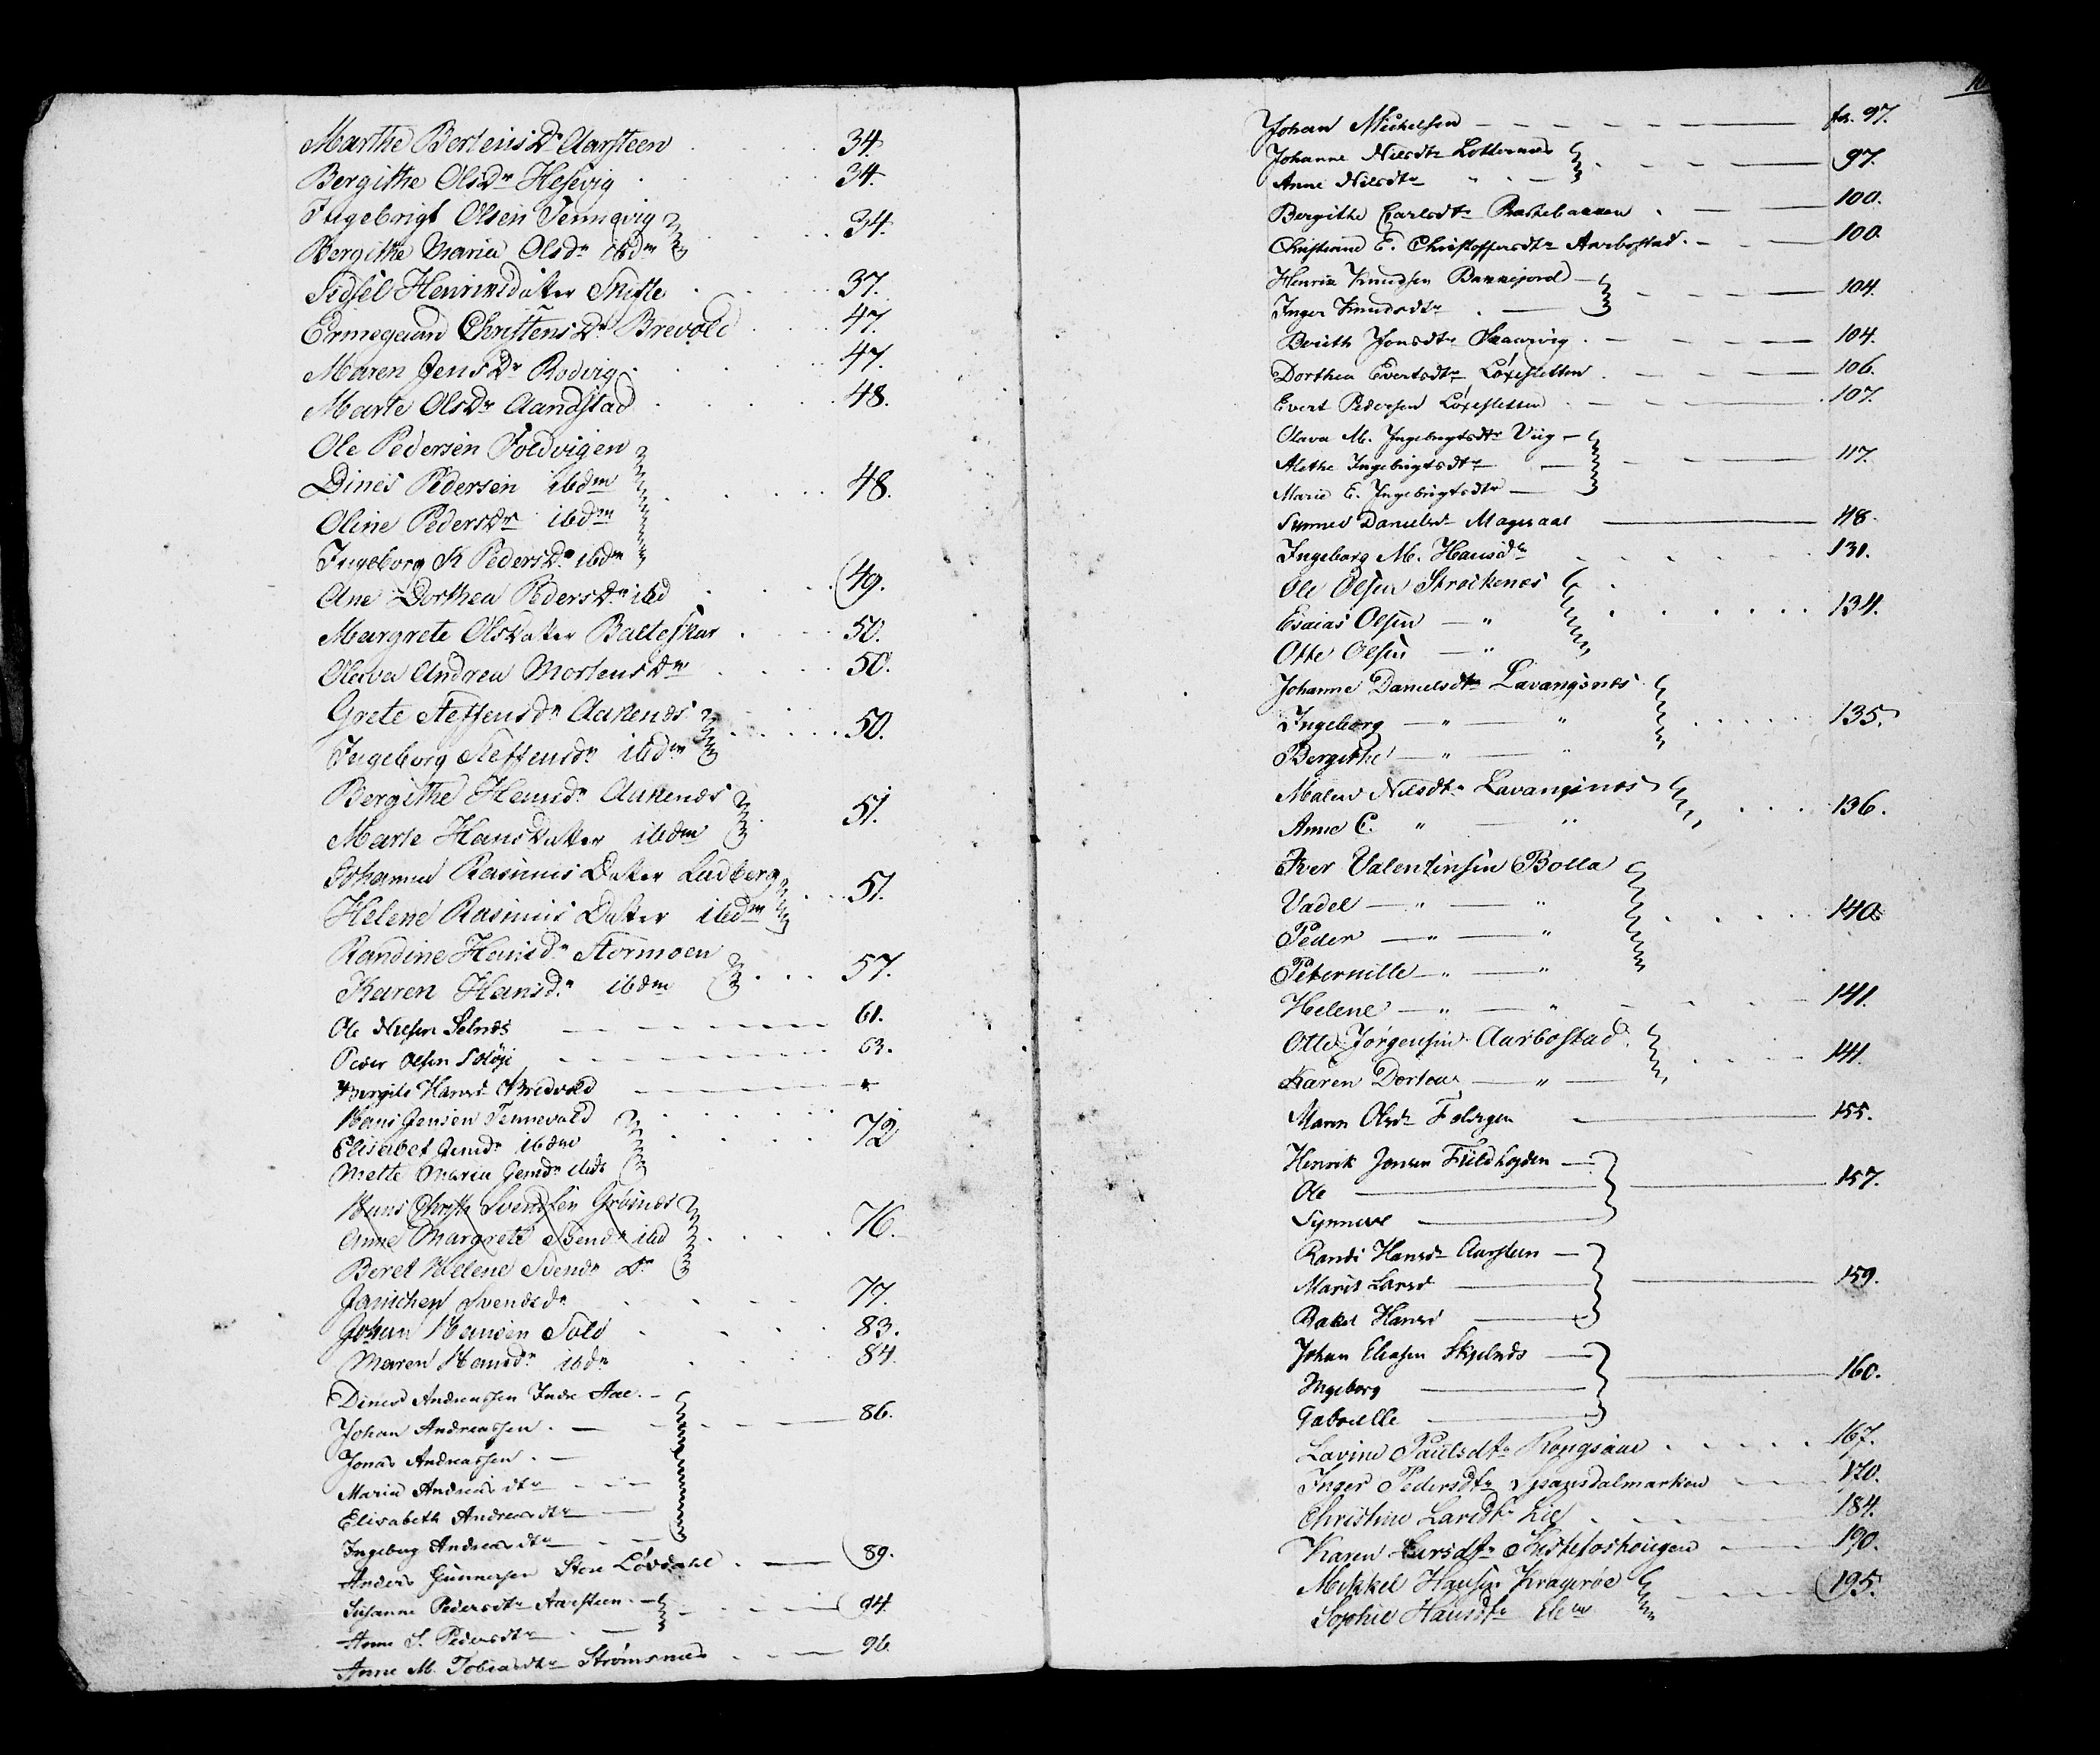 Marthe Bertens Dr Aarsteen 34.
Bergithe Ols Dr Hesevig 34.
Ingebrigt Olsen Tennevig
Bergithe Maria Olsdr ibdm 34.
Sidsel Henriksdatter Skifte 37.
Ermegaard Christens Dr Brevold 47.
Maren Jens Dr Rodvig 47.
Marte Ols Dr Aandstad 48.
Ole Pedersen Foldvigen
Dines Pedersen ibdm 48.
Oline Peders Dr ibdm
Ingeborg K Peders Dr ibdm
Ane Dorthea Peders Dr ibd 49.
Margrete Ols Datter Balteskar 50.
Olava Andrea Mortens Dr 50.
Grete Steffensdr Aakenæs
Ingeborg Steffensdr ibdm 50.
Bergithe Hansdr Aakenæs
Marte Hans Datter ibdm 51.
Johanna Rasmus Datter Ludberg
Helene Rasmus Datter ibdm 51.
Randine Hansdr Stormoen
Karen Hansdr ibdm 57.
Ole Nielsen Selnæs 61.
Peder Olsen Soløje 63.
Bergite Hansd Bredvold
Hans Jensen Tennevold
Elisabet Jensdr ibdm 72
Mette Maria Jensdr ibd
Hans Christ. Svendsen Grøsnæs
Anne Margrete Svendr ibd 76.
Beret Helene Svendr Dr
Janichen Svendsdr 77.
Johan Hansen Solø 83.
Maren Hansdr ibdm 84.
Dines Andreassen Indre Aae.
Johan Andreassen. 86.
Jonas Andreassen.
Maria Andreasdtr
Elisabeth Andreasdtr
Ingeborg Andreasdtr
Anders Gunnersen Store Løvdahl 89.
Susanne Pedersdtr Aarsteen 94.
Anne S. Pedersdtr
Anne M. Tobiasdtr Strømsnæs 96.
Johan Michelsen fol. 97.
Johanne Nilsdtr Lotternæs 97.
Anne Nilsdtr "
Bergithe Carlsdtr Brattebakken 100.
Christine E. Christoffersdtr Aarbostad. 100.
Henrik Knudsen Bannejord 104.
Inger Knudsdtr
Berith Jonsdtr Skaarvig 104.
Dorthea Evertsdtr Løxesletten 106.
Evert Pedersen Løxesletten 107.
Olava M. Ingebrigtsdtr Viig
Alethe Ingebrigtsdtr 117.
Marie E. Ingebrigtsdtr
Synnev Danielsd Magesaas 118.
Ingeborg M. Hansdr 131.
Ole Olsen Strokenes
Esaias Olsen — " 134.
Otte Olsen — "
Johanne Danielsdtr Lavangsnæs
Ingeborg — " — " 135.
Bergithe — " — "
Malene Nilsdtr Lavangsnæs
Anne C. " — " 136.
Iver Valentinsen Bolla
Vadel — " — " 140.
Peder — " — "
Peternille — " — "
Helene — " — " 141.
Otte Jørgensen Aarbostad
Karen Dortea — " — 141.
Maren Olsd Foldvigen 155.
Henrik Jonsen Fieldhøgden
Ole 157.
Synnøve
Randi Hansd Aarsteen
Marit Larsd 159.
Rakel Hansd
Johan Eliasen Skjelnæs
Ingeborg 160.
Gabrielle
Lavine Paulsdtr Kongsaas 167.
Inger Pedersdtr Spansdalmarken 170.
Christine Larsdtr Lie 184.
Karen Larsdtr Kistefoshougen 190.
Mikkel Hansen Kragerøe 195.
Sophie Hansdtr